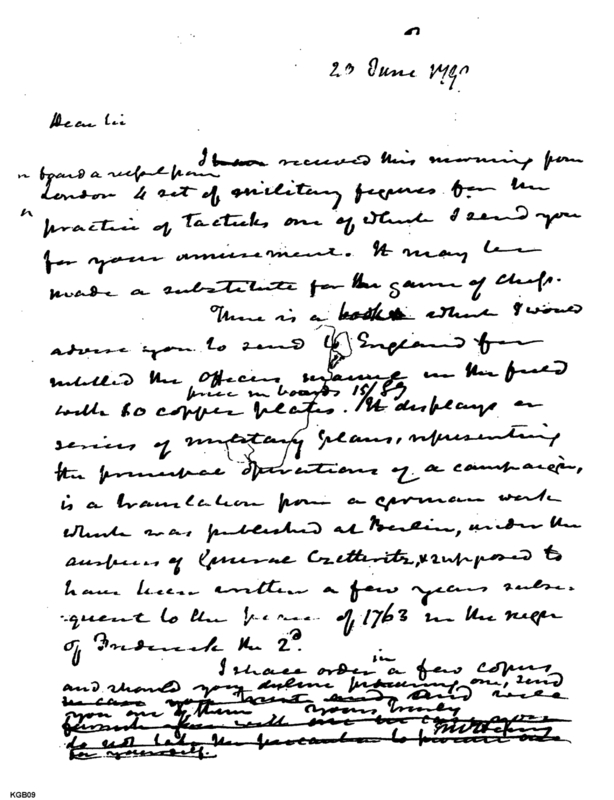 23 June
Dear Sir
I have received this morning from
on board a vessel from
London 4 set of military figures for the
practice of Tacticks one of which I send you
for your amusement. It may be
made a substitute for the game of Chess.
There is a book which I would
advise you to send to England for
intitled the Officers manual in the field
price in boards 15/
with 60 copper plates. It displays a
series of military plans, representing
the principal operations of a campaign,
is a translation from a german work
which was published at Berlin, under the
auspices of General Czetteritz, & supposed to
have been written a few years subse-
quent to the peace of 1763 in the reign
of Frederick the 2d.
I shall order in a few copies
and should you decline procuring one, send
you one of them yours truly
do not take the precaution to procure one
for yourself.
KGB09